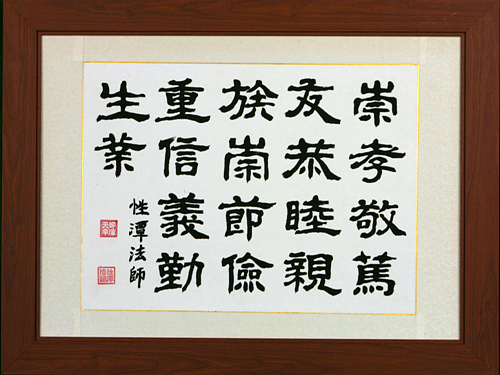 崇孝敬篤
友恭睦親
族崇節儉
重信義勤
生業
性潭法師